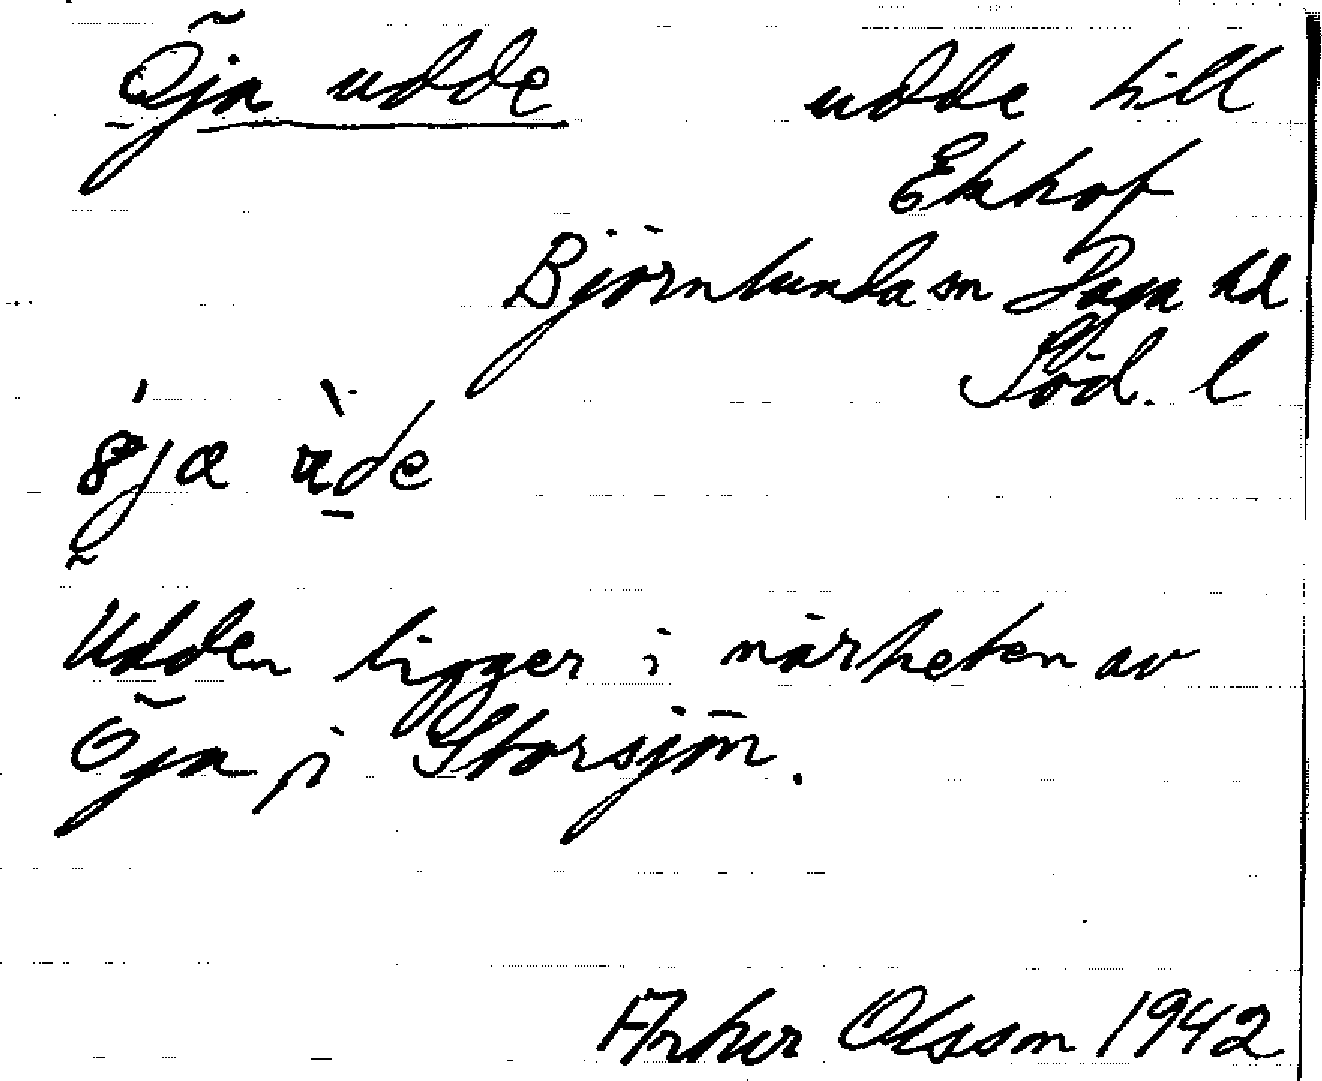 Öja udde udde till
Ekhof
Björnlunda sn Daga hd
Söd. l
Udden ligger i närheten av
Öja i Storsjön.
Olsson 1942